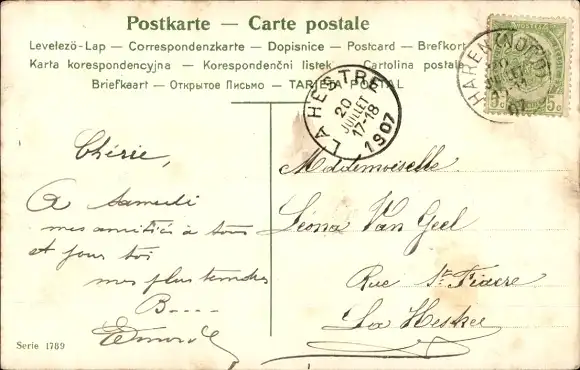 Postkarte — Carte postale
Levelező-Lap — Correspondenzkarte — Dopisnice — Postcard — Brefkort
Karta korespondencyjna — Korespondenční lístek — Cartolina postale
Briefkaart — Открытое Письмо — TARJETA POSTAL
HAREN (NORD)
07
5c 5c
LA HESTRE
20
JUILLET
17-18
1907
Chérie,
A Samedi
mes amitiés à tous
et pour toi
mes plus tendres
B----
Edmond
Mademoiselle
Léona Van Geel
Rue St. Fiacre
La Hestre
Serie 1789